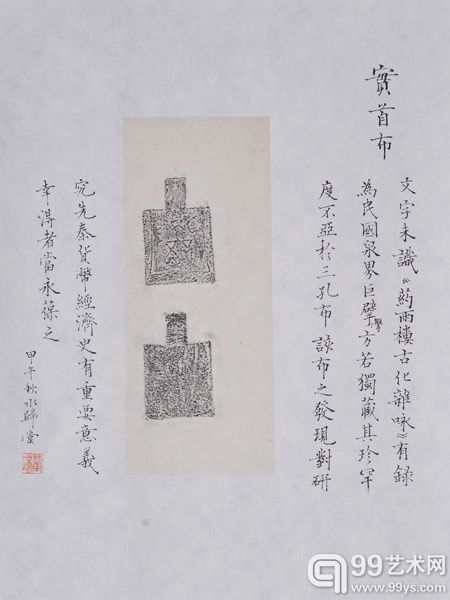 實首布
文字未識《葯雨樓古化雜咏》有錄
為民國泉界巨擘方若獨藏其珍罕
度不亞於三孔布該布之發現對研
究先秦貨幣經濟史有重要意義
幸得者當永葆之
甲午秋水歸堂
99艺术网
www.99ys.com